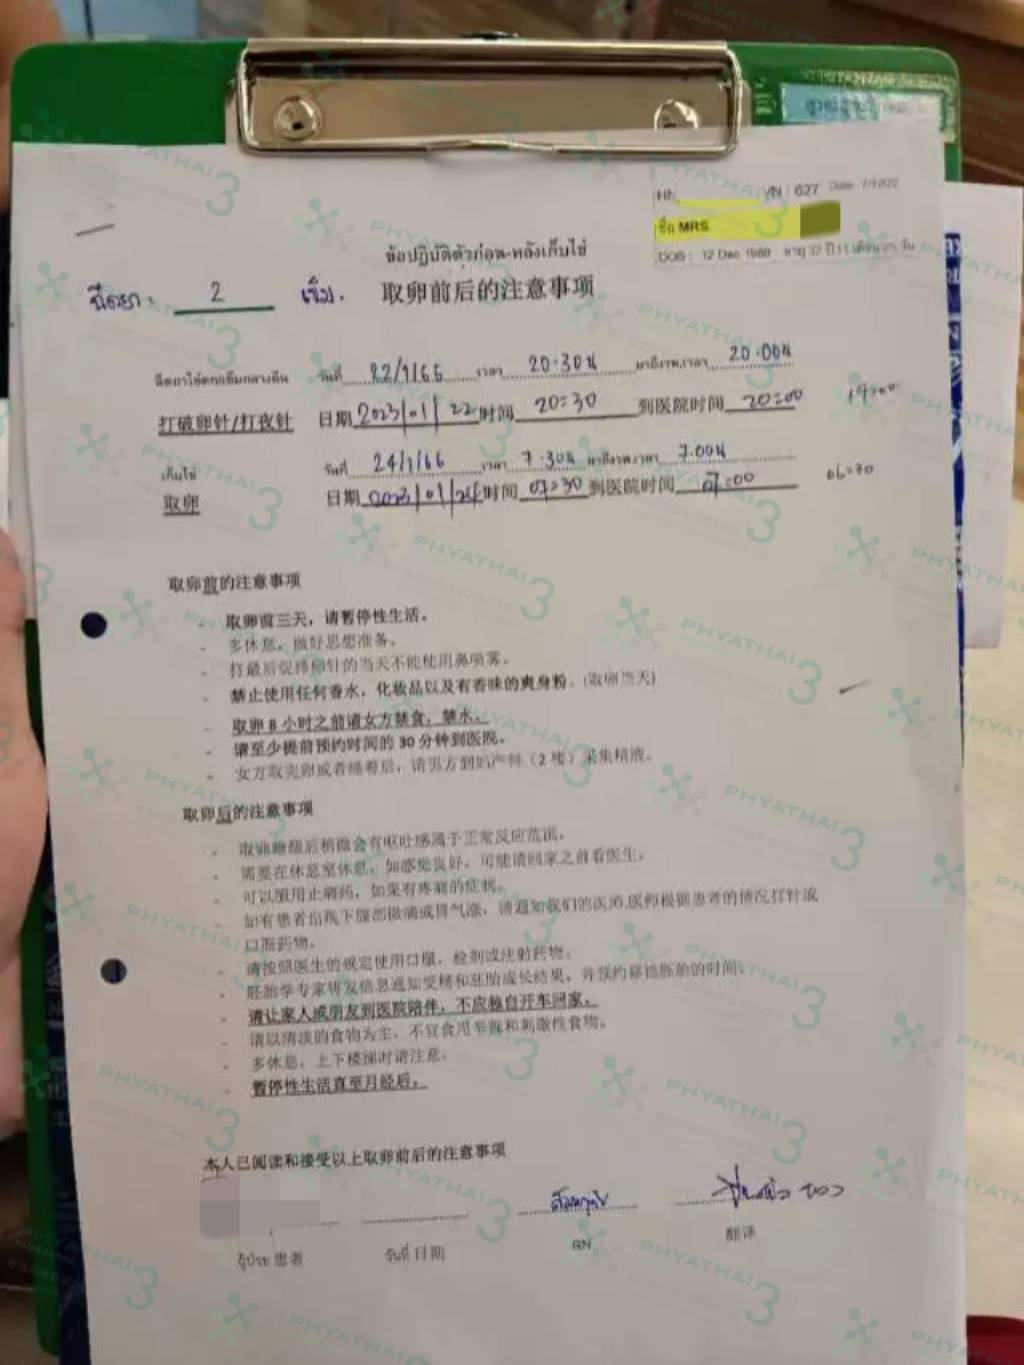 HN VN : 627 Date 7/1/22
ชื่อ MRS
DOB : 12 Dec อายุ ปี 11 เดือน วัน
ข้อปฏิบัติตัวก่อน-หลังเก็บไข่
ฉีดยา 2 เข็ม. 取卵前后的注意事项
ฉีดยาไข่ตกเข็มกลางคืน วันที่ 22/1/66 เวลา 20.30น มาถึงรพ.เวลา 20.00น
打破卵针/打夜针 日期 2023/01/22 时间 20:30 到医院时间 20:00 19:00
เก็บไข่ วันที่ 24/1/66 เวลา 7.30น มาถึงรพ.เวลา 7.00น
取卵 日期 2023/01/24 时间 07:30 到医院时间 07:00
取卵前的注意事项
- 取卵前三天，请暂停性生活。
- 多休息，做好思想准备。
- 打最后促排卵针的当天不能使用鼻喷雾。
- 禁止使用任何香水，化妆品以及有香味的爽身粉。(取卵当天)
- 取卵 8 小时之前请女方禁食，禁水。
- 请至少提前预约时间的 30 分钟到医院。
- 女方取完卵或者睡着后，请男方到妇产科（2 楼）采集精液。
取卵后的注意事项
- 取卵睡醒后稍微会有呕吐感属于正常反应范围。
- 需要在休息室休息，如感觉良好，可能请回家之前看医生。
- 可以服用止痛药，如果有疼痛的症状。
- 如有患者出现下腹部微痛或胃气涨，请通知我们的医师,医师根据患者的情况打针或
口服药物。
- 请按照医生的规定使用口服、栓剂或注射药物。
- 胚胎学专家将发信息通知受精和胚胎成长结果，并预约移植胚胎的时间。
- 请让家人或朋友到医院陪伴，不应独自开车回家。
- 请以清淡的食物为主，不宜食用辛辣和刺激性食物。
- 多休息，上下楼梯时请注意。
- 暂停性生活直至月经后。
本人已阅读和接受以上取卵前后的注意事项
ผู้ป่วย 患者 วันที่ 日期 RN 翻译
PHYATHAI 3